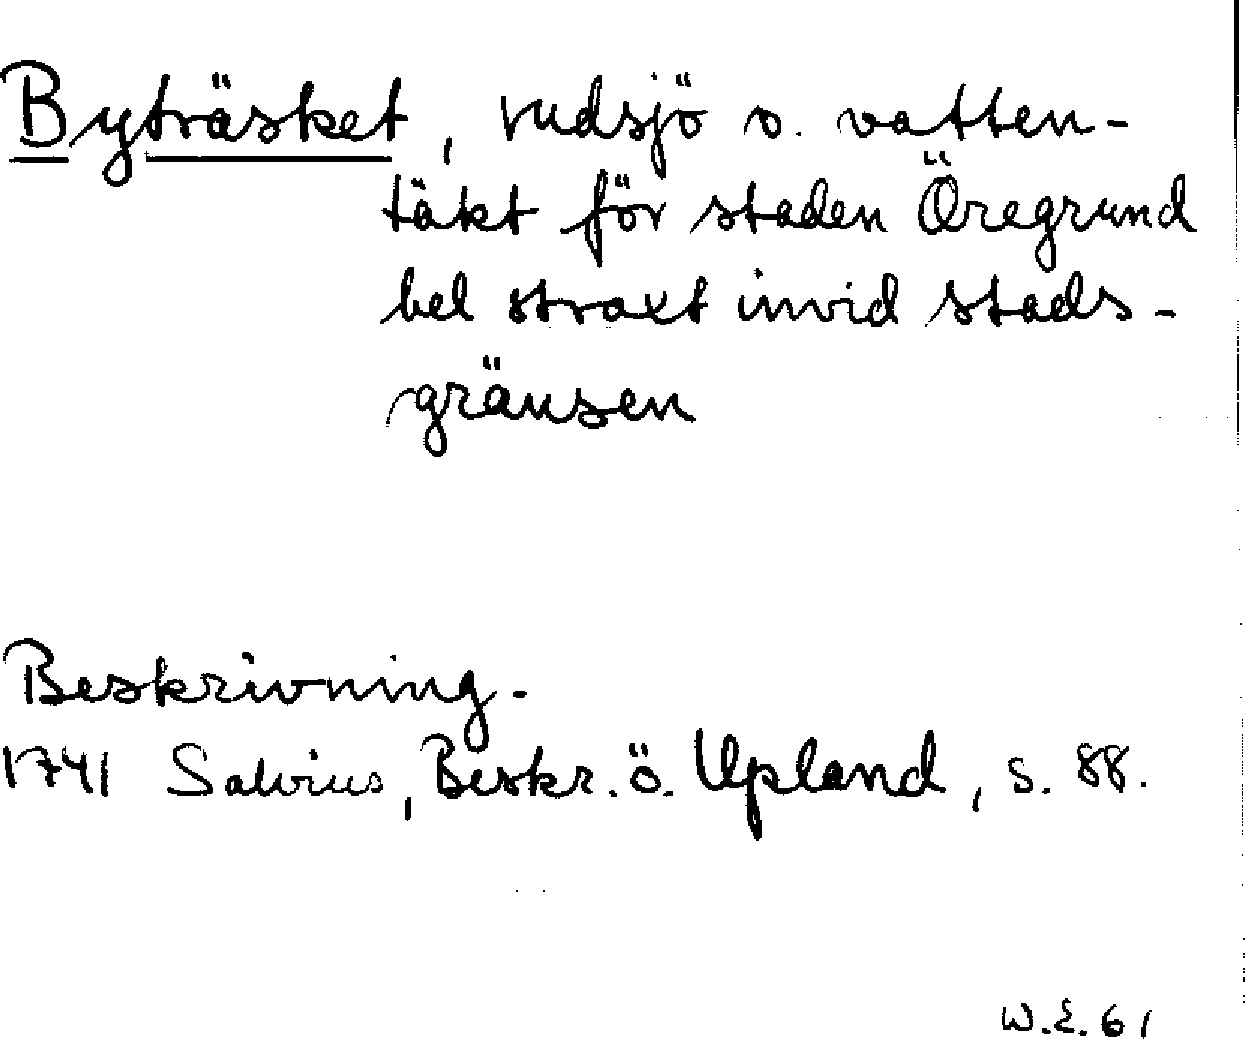 Byträsket, rudsjö o. vatten-
täkt för staden Öregrund
bel straxt invid stads-
gränsen
Beskrivning.
1741 Salvius, Beskr. ö. Upland, s. 88.
W.E. 61